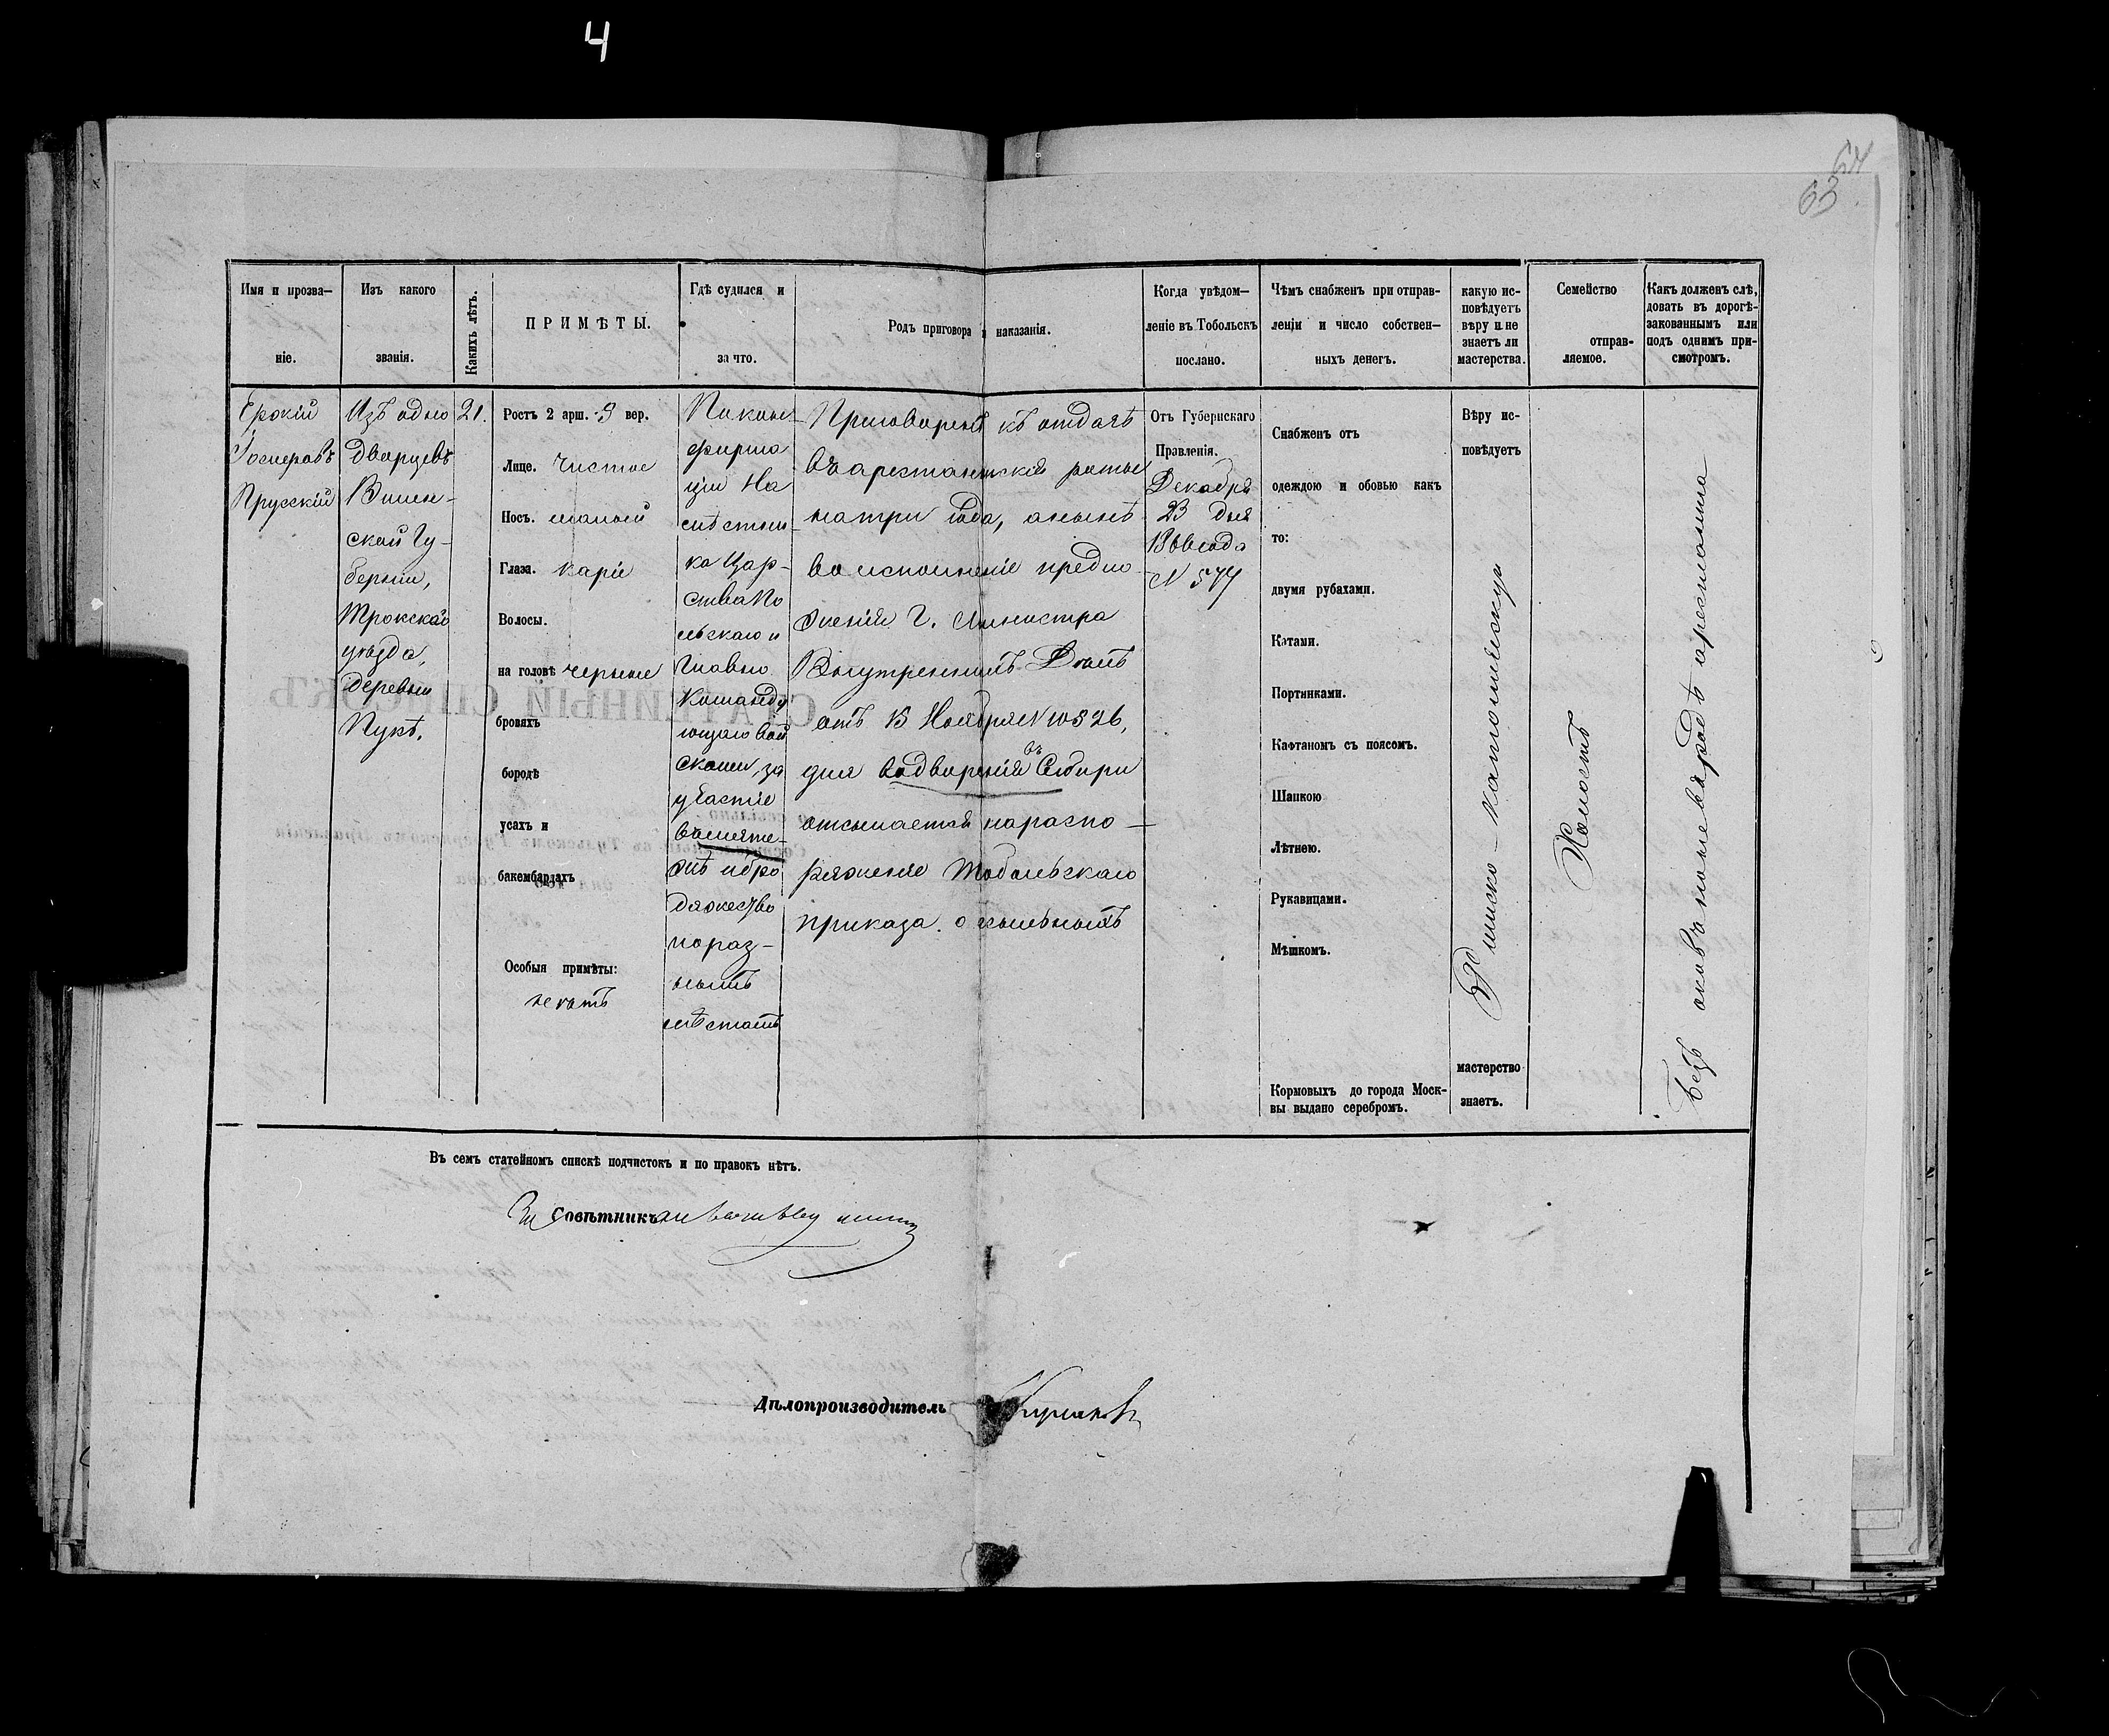 4
64
63
Имя и прозва-
ніе.
Изъ какого
званія.
Какихъ лѣтъ.
ПРИМѢТЫ.
Гдѣ судился и
за что.
Родъ приговора и наказанія.
Когда увѣдом-
леніе въ Тобольскъ
послано.
Чѣмъ снабженъ при отправ-
леніи и число собствен-
ныхъ денегъ.
какую ис-
повѣдуетъ
вѣру и не
знаетъ ли
мастерства.
Семейство
отправ-
ляемое.
Какъ долженъ слѣ,
довать въ дорогѣ-
закованнымъ или
подъ однимъ при-
смотромъ.
Прусскій
Изъ одно
дворцевъ
Вилен-
ской Гу-
берніи,
Трокскаго
уѣзда,
деревни
21.
Ростъ 2 арш. 5 вер.
Лице. чистое
Носъ. малый
Глаза. каріе
Волосы.
на головѣ черные
бровяхъ
бородѣ
усахъ и
бакембардахъ
Особыя примѣты:
нетъ
По кон-
фирма
ціи На
мѣстни-
ка Цар-
ства По
льскаго и
Главно
команду
ющаго вой
сками, за
участіе
въ мяте-
жѣ и бро
дяжество
по раз-
нымъ
мѣстамъ
Приговоренъ къ отдачѣ
въ арестантскія роты
на три года, а нынѣ
во исполненіе предло
женія Г. Министра
Внутреннихъ Дѣлъ
отъ 13 Ноября N 10826,
для водворенія въ Сибири
отсылается на распо-
ряженіе Тобольскаго
приказа о ссыльныхъ
Отъ Губернскаго
Правленія.
Декабря
23 дня
1866 года
N 577
Снабженъ отъ
одеждою и обовью какъ
то:
двумя рубахами.
Катами.
Портянками.
Кафтаномъ съ поясомъ.
Шапкою
Лѣтнею.
Рукавицами.
Мѣшкомъ.
Кормовыхъ до города Моск-
вы выдано серебромъ.
Вѣру ис-
повѣдуетъ
Римско-Католическую
мастерство
знаетъ.
Холостъ
Безъ оковъ на
Въ семъ статейномъ спискѣ подчистокъ и по правокъ нѣтъ.
Совѣтникъ
Дѣлопроизводитель